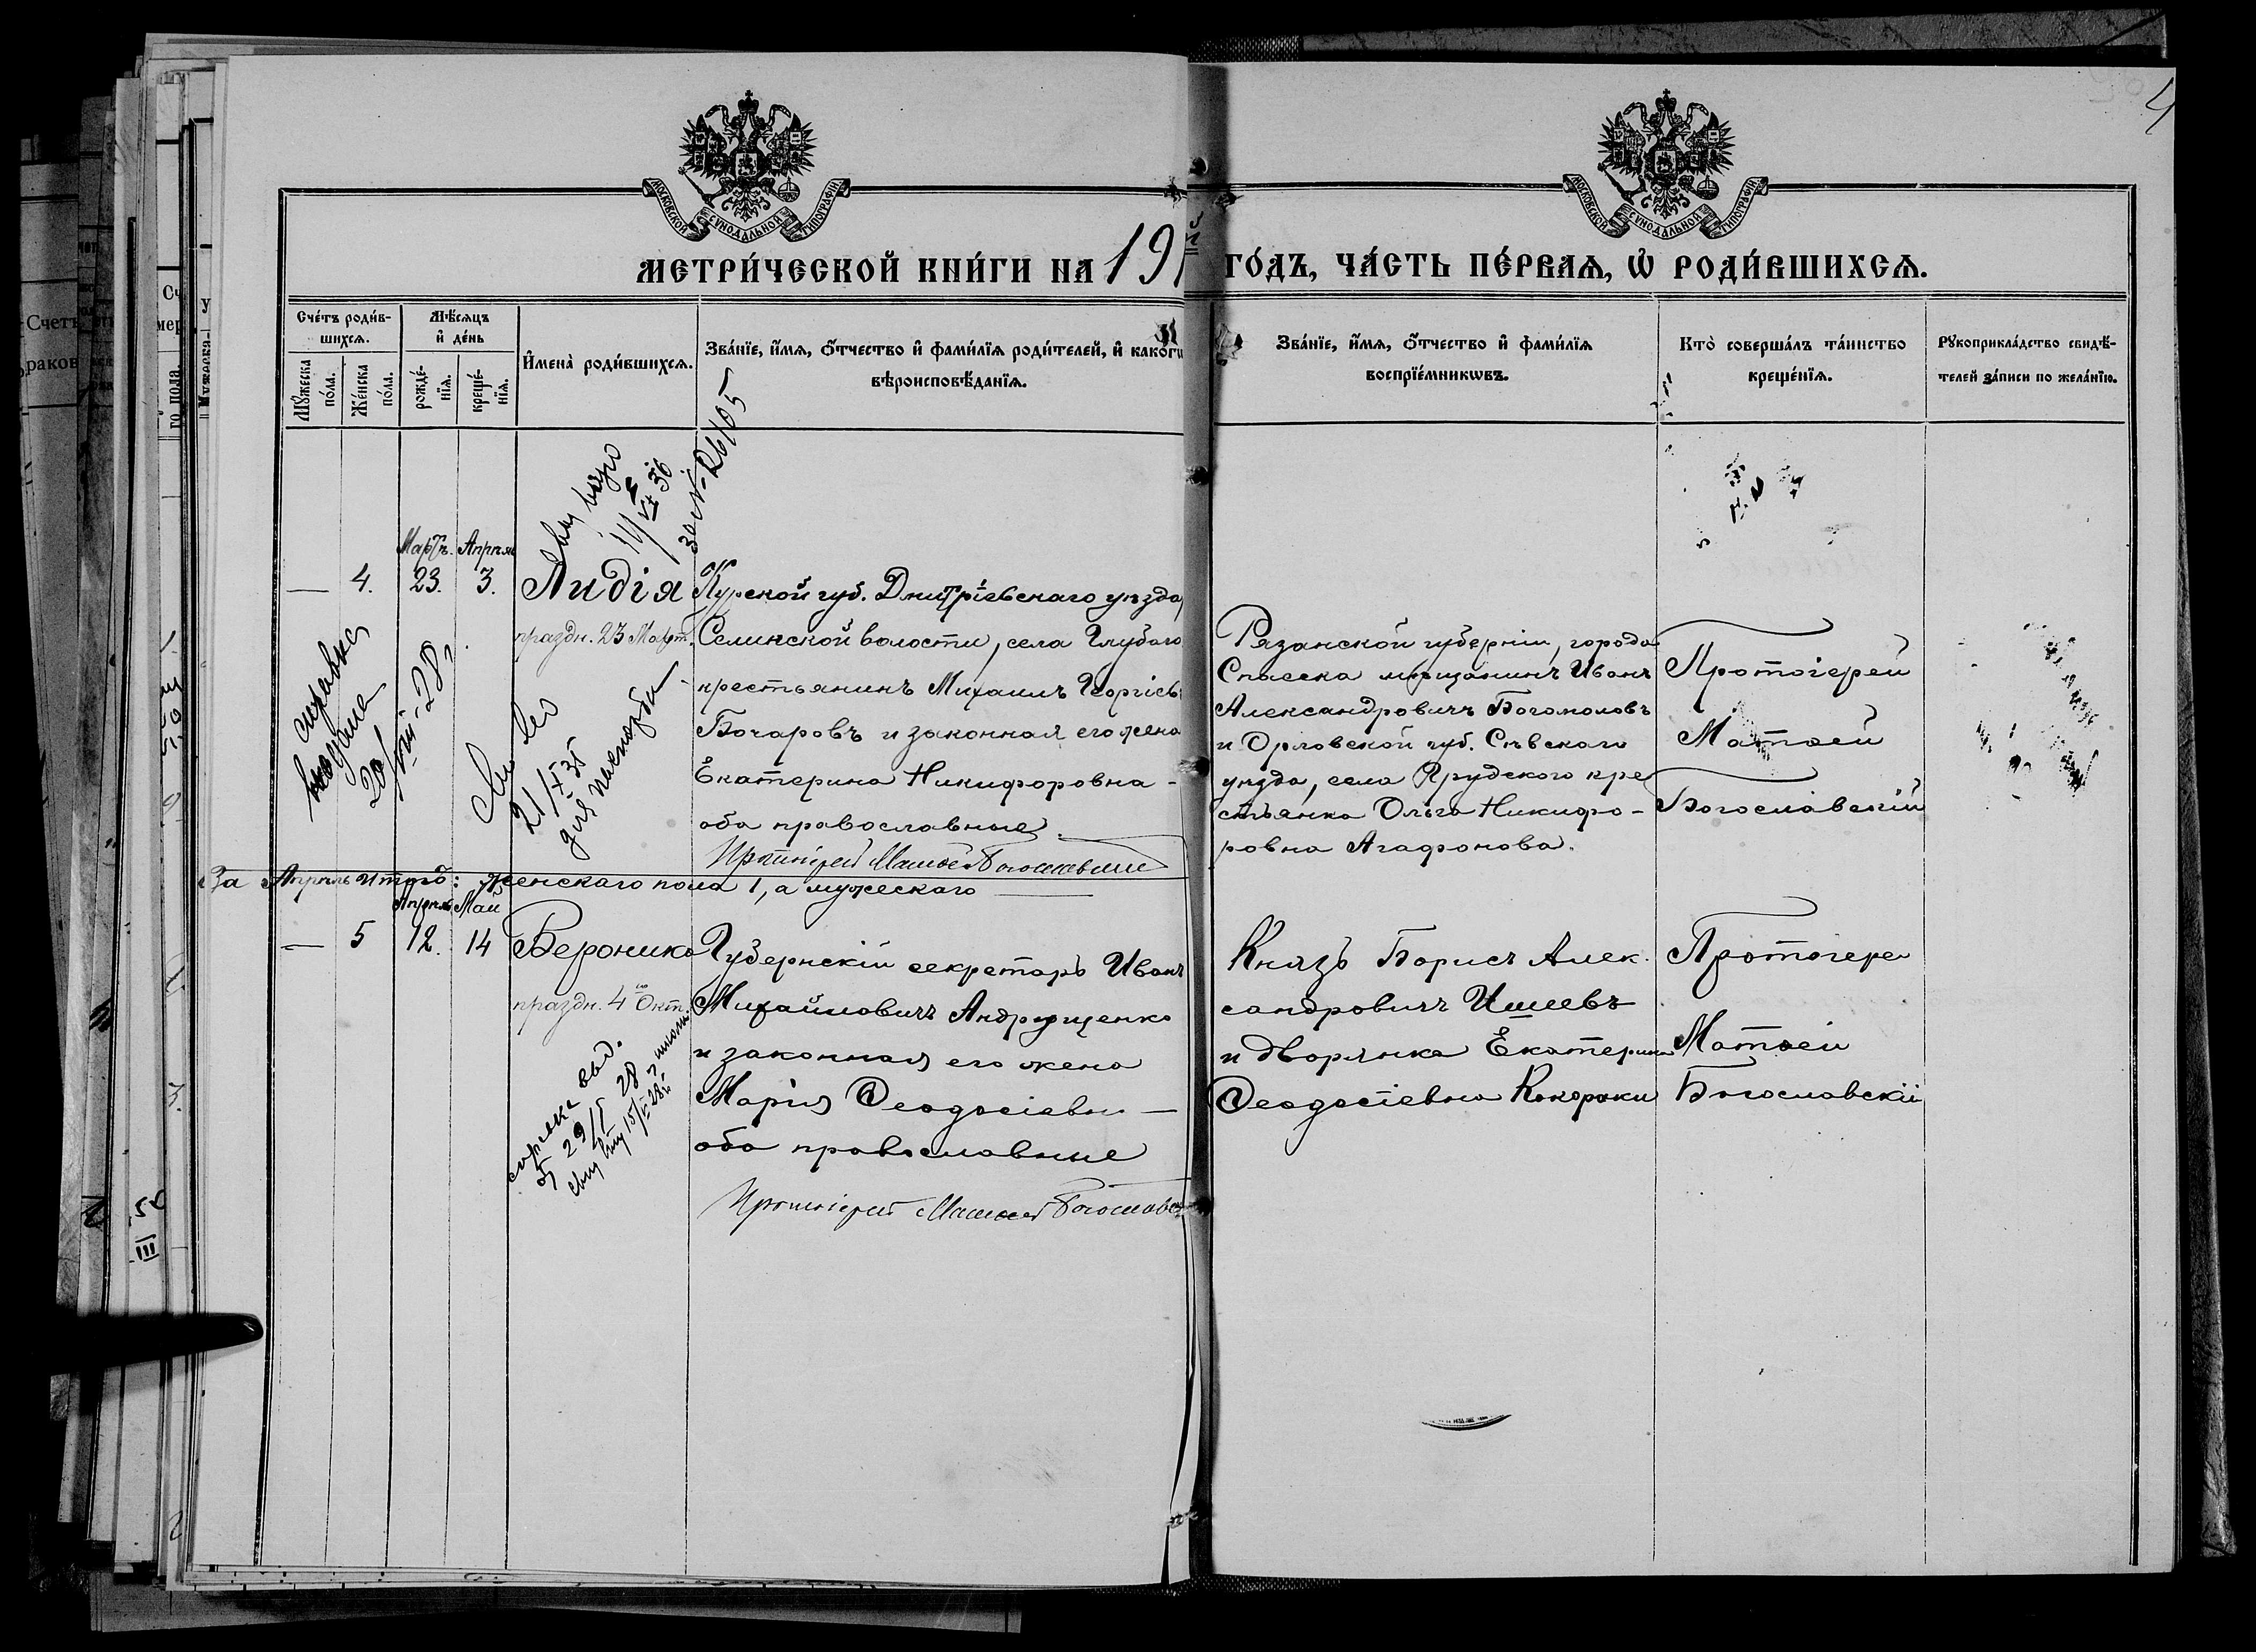 МОСКОВСКОЙ СѴНОДАЛЬНОЙ ТИПОГРАФІИ
МОСКОВСКОЙ СѴНОДАЛЬНОЙ ТИПОГРАФІИ
4
МЕТРИ́ЧЕСКОЙ КНИ́ГИ НА 191
ГО́ДЪ, ЧА́СТЬ ПЕ́РВАѦ, Ѡ҆ РОДИ́ВШИХСѦ.
Сче́тъ роди́в-
шихсѧ.
Мѣ́сѧцъ
и҆ де́нь
Мꙋ́жеска
по́ла.
Же́нска
по́ла.
рожде́-
нїѧ.
креще́-
нїѧ.
И҆мена̀ роди́вшихсѧ.
Зва́нїе, и҆́мѧ, ѻ҆́тчество и҆ фамі́лїѧ роди́телей, и҆ како́гѡ
вѣроисповѣ́данїѧ.
Зва́нїе, и҆́мѧ, ѻ҆́тчество и҆ фамі́лїѧ
воспрїе́мникѡвъ.
Кто̀ соверша́лъ та́инство
креще́нїѧ.
Рꙋкоприкла́дство свидѣ́-
телей за́писи по жела́нїю.
за № 26105
Мартъ. Апрѣль
— 4. 23. 3. Лидія
праздн. 23 Март.
Курской губ. Дмитріевскаго уѣзда,
Селинской волости, села Глубого
крестьянинъ Михаилъ Георгіев
Бочаровъ и законная его жена
Екатерина Никифоровна -
оба православные
Протоіерей Матѳей Богословскій
Рязанской губерніи, города
Спасска мѣщанинъ Иванъ
Александровичъ Богомоловъ
и Орловской губ. Сѣвскаго
уѣзда, села Прудского кре
стьянка Ольга Никифо-
ровна Агафонова.
Протоіерей
Матѳей
Богословскій
справка
выдана
20/VIII-28 г.
21/X 35
За Апрѣль итого: женскаго пола 1, а мужескаго —
Апрѣль Маи
— 5 12. 14 Вероника
праздн. 4 го Окт.
Губернскій секретарь Иванъ
Михайловичъ Андрющенко
и законная его жена
Марія Ѳеодосіевна —
оба православные
Протоіерей Матѳей Богослов
Князь Борисъ Алек-
сандровичъ Ишеевъ
и дворянка Екатерина
Ѳеодосіевна Кокораки
Протоіере
Матѳей
Богословскій
справка выд.
29/V 28